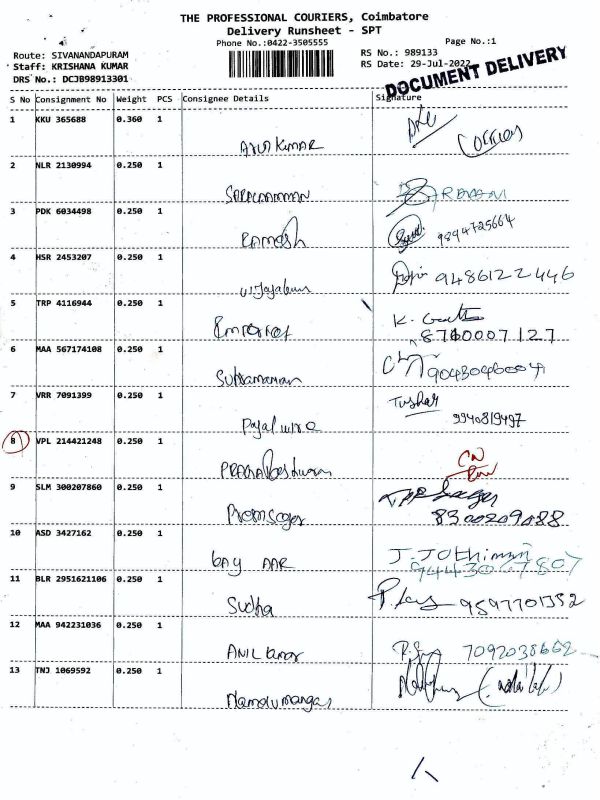 THE PROFESSIONAL COURIERS, Coimbatore
Delivery Runsheet - SPT
Phone No.:0422-3505555
Page No.:1
Route: SIVANANDAPURAM
RS No.: 989133
Staff: KRISHANA KUMAR
RS Date: 29-Jul-2022
DRS No.: DCJB98913301
DOCUMENT DELIVERY
S No Consignment No Weight PCS Consignee Details Signature
1 KKU 365688 0.360 1
Arun Kumar
2 NLR 2130994 0.250 1
3 PDK 6034498 0.250 1
Ramesh 9894725664
4 HSR 2453207 0.250 1
Vijayakumar 9486122446
5 TRP 4116944 0.250 1
K. 8760007127
6 MAA 567174108 0.250 1
Subramanian 9043046004
7 VRR 7091399 0.250 1
Tushar
9940819497
8 VPL 214421248 0.250 1
CN
9 SLM 300207860 0.250 1
Premsagar 8300209088
10 ASD 3427162 0.250 1
J. Jothimani
11 BLR 2951621106 0.250 1
Sudha 9597701352
12 MAA 942231036 0.250 1
Anil Kumar 7092038662
13 TNJ 1069592 0.250 1